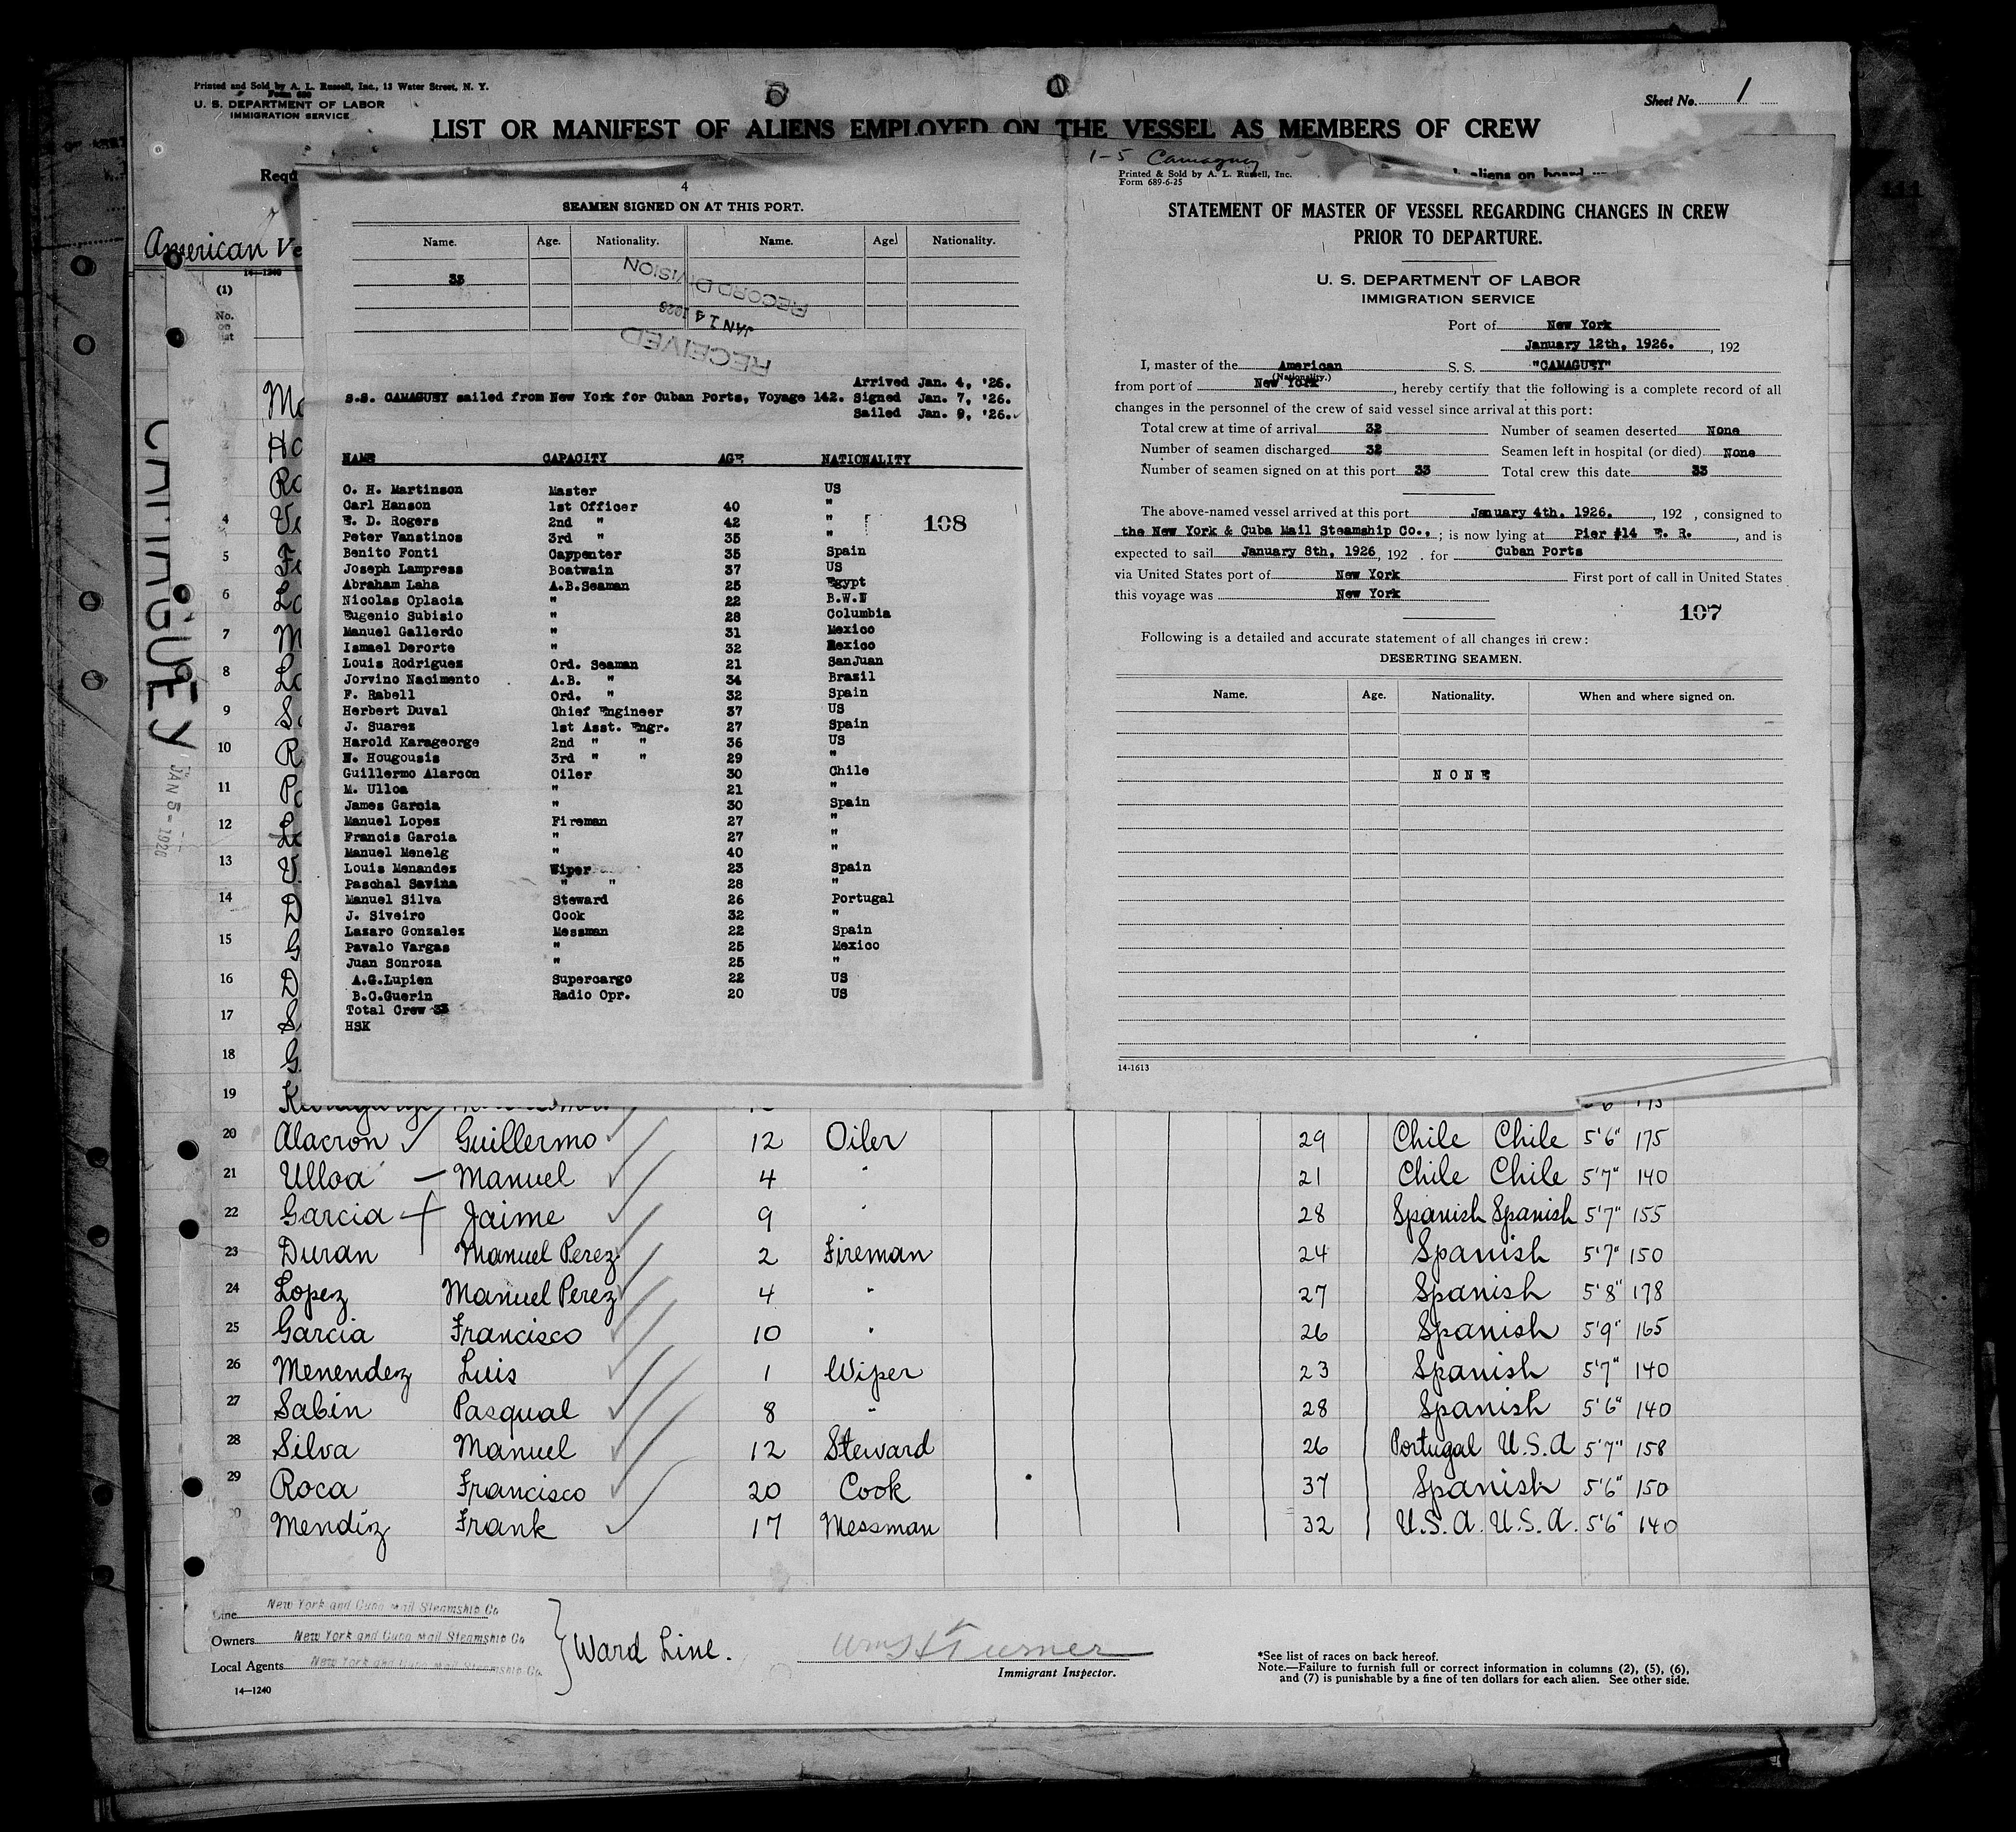 Printed and Sold by A. L. Russell, Inc., 13 Water Street, N. Y.
Form 680
U. S. DEPARTMENT OF LABOR
IMMIGRATION SERVICE
Sheet No. 1
LIST OR MANIFEST OF ALIENS EMPLOYED ON THE VESSEL AS MEMBERS OF CREW
Reqd
aliens on board
American Ve
14—1240
(1)
No.
on
list
CAMAGUEY
4
SEAMEN SIGNED ON AT THIS PORT.
Name. Age. Nationality. Name. Age. Nationality.
33
RECEIVED
JAN 14 1926
RECORD DIVISION
Arrived Jan. 4, '26.
S.S. CAMAGUEY sailed from New York for Cuban Ports, Voyage 142. Signed Jan. 7, '26.
Sailed Jan. 9, '26.
NAME CAPACITY AGE NATIONALITY
O. H. Martinson Master US
Carl Hanson 1st Officer 40 "
E. D. Rogers 2nd " 42 "
108
Peter Vanstinos 3rd " 35 "
Benito Fonti Cappenter 35 Spain
Joseph Lampress Boatwain 37 US
Abraham Laha A.B.Seaman 25 Egypt
Nicolas Oplacia " 22 B.W.I
Eugenio Subisio " 28 Columbia
Manuel Gallerdo " 31 Mexico
Ismael Derorte " 32 Mexico
Louis Rodriguez Ord. Seaman 21 SanJuan
Jorvino Nacimento A.B. " 34 Brazil
F. Rabell Ord. " 32 Spain
Herbert Duval Chief Engineer 37 US
J. Suarez 1st Asst. Engr. 27 Spain
Harold Karageorge 2nd " " 36 US
N. Hougousis 3rd " " 29 "
Guillermo Alarcon Oiler 30 Chile
M. Ulloa " 21 "
James Garcia " 30 Spain
Manuel Lopez Fireman 27 "
Francis Garcia " 27 "
Manuel Menelg " 40 "
Louis Menandez Wiper 23 Spain
Paschal Savina " " 28 "
Manuel Silva Steward 26 Portugal
J. Siveiro Cook 32 "
Lazaro Gonzalez Messman 22 Spain
Pavalo Vargas " 25 Mexico
Juan Sonroza " 25 "
A.G.Lupien Supercargo 22 US
B.C.Guerin Radio Opr. 20 US
Total Crew 33
HSK
1-5 Camaguey
Printed & Sold by A. L. Russell, Inc.
Form 689-6-25
STATEMENT OF MASTER OF VESSEL REGARDING CHANGES IN CREW
PRIOR TO DEPARTURE.
U. S. DEPARTMENT OF LABOR
IMMIGRATION SERVICE
Port of New York
January 12th, 1926. , 192
I, master of the American S. S. "CAMAGUEY"
(Nationality.)
from port of New York , hereby certify that the following is a complete record of all
changes in the personnel of the crew of said vessel since arrival at this port:
Total crew at time of arrival 32 Number of seamen deserted None
Number of seamen discharged 32 Seamen left in hospital (or died) None
Number of seamen signed on at this port 33 Total crew this date 33
The above-named vessel arrived at this port January 4th. 1926. , 192 , consigned to
the New York & Cuba Mail Steamship Co., ; is now lying at Pier #14 E. R. , and is
expected to sail January 8th, 1926 , 192 . for Cuban Ports
via United States port of New York First port of call in United States
this voyage was New York
107
Following is a detailed and accurate statement of all changes in crew:
DESERTING SEAMEN.
Name. Age. Nationality. When and where signed on.
NONE
14-1613
4
5
6
7
8
9
10
11
12
13
14
15
16
17
18
19
20 Alacron Guillermo 12 Oiler 29 Chile Chile 5'6" 175
21 Ulloa — Manuel 4 " 21 Chile Chile 5'7" 140
22 Garcia Jaime 9 " 28 Spanish Spanish 5'7" 155
23 Duran Manuel Perez 2 Fireman 24 Spanish 5'7" 150
24 Lopez Manuel Perez 4 " 27 Spanish 5'8" 178
25 Garcia Francisco 10 " 26 Spanish 5'9" 165
26 Menendez Luis 1 Wiper 23 Spanish 5'7" 140
27 Sabin Pasqual 8 " 28 Spanish 5'6" 140
28 Silva Manuel 12 Steward 26 Portugal U.S.A 5'7" 158
29 Roca Francisco 20 Cook 37 Spanish 5'6" 150
Mendiz Frank 17 Messman 32 U.S.A. U.S.A. 5'6" 140
Line New York and Cuba Mail Steamship Co
Owners New York and Cuba Mail Steamship Co
Local Agents New York and Cuba Mail Steamship Co.
Ward Line.
Wm H Turner
Immigrant Inspector.
14—1240
*See list of races on back hereof.
Note.—Failure to furnish full or correct information in columns (2), (5), (6),
and (7) is punishable by a fine of ten dollars for each alien. See other side.